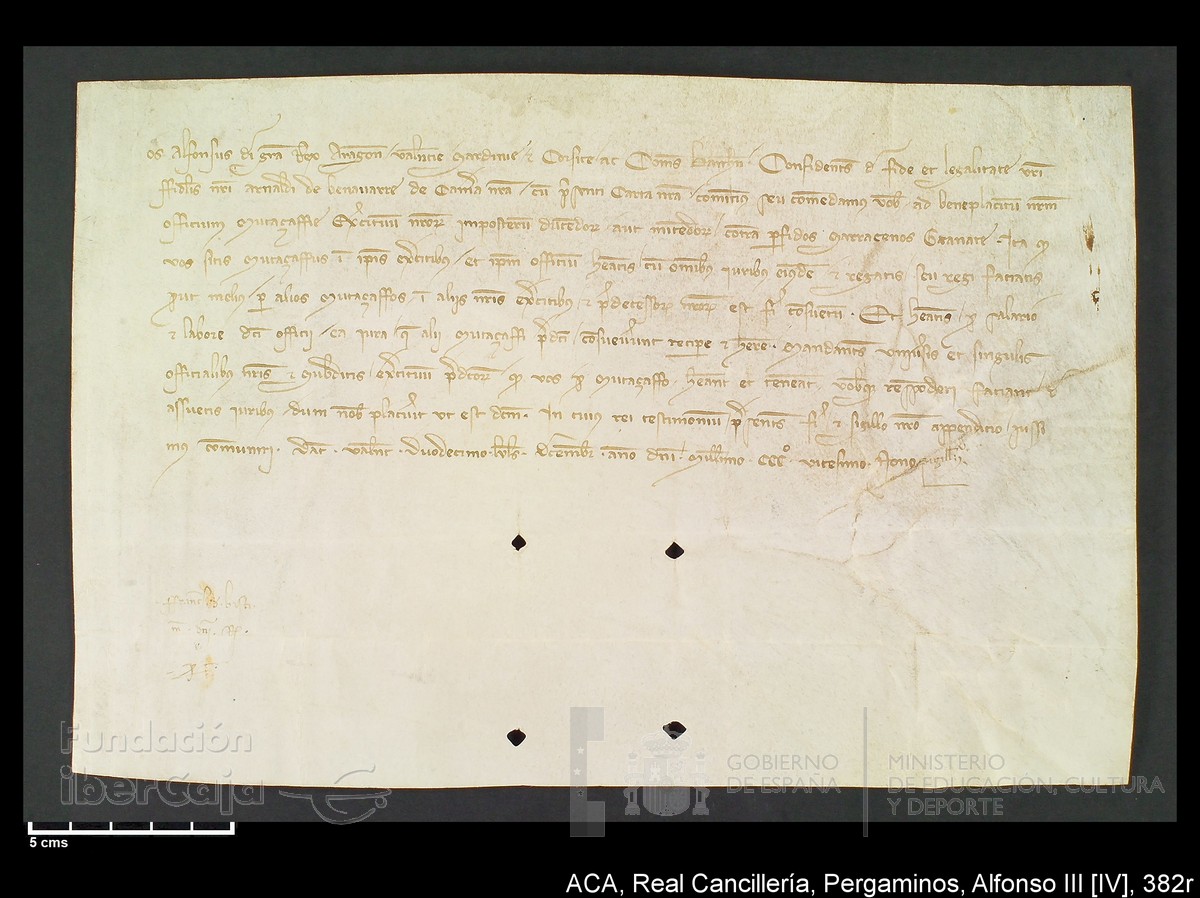 os Alfonsus dei gra Rex Aragon Valencie Sardinie et Corsice ac Comes Barchn Confidentes de fide et legalitate vri
fidelis nri Arnaldi de Benavarre de Camera nra cum presenti Carta nra comittimus seu comendamus vobis ad beneplacitum nrm
officium Mutaçaffie Exercituum nrorum imposterum ducendorum aut mittendorum contra perfidos Sarracenos Granate Ita qd
vos sitis Mutaçaffus in ipsis exercitibus et ipm officium heatis cum omnibus iuribus eiusdem et regatis seu regi faciatis
prout melius per alios Mutaçaffos in aliis nris exercitibus et predecessorum nrorum est fieri consuetum Et heatis pro salario
et labore dci officii ea iura que alii Mutaçaffi predicti consueverunt recipere et here Mandantes universis et singulis
officialibus nris et subditis exercituum predictorum qd vos pro Mutaçaffo heant et teneant vobisque responderi faciant de
assuetis iuribus dum nobis placuerit ut est dcm In cuius rei testimonium presentes fieri et sigillo nro appendicio jussi
mus comuniri Dat Valencie duodecimo kls decembr anno dni Millesimo CCCº vicesimo Nono
Fundación
iberCaja
GOBIERNO
DE ESPAÑA
MINISTERIO
DE EDUCACIÓN, CULTURA
Y DEPORTE
5 cms
ACA, Real Cancillería, Pergaminos, Alfonso III [IV], 382r